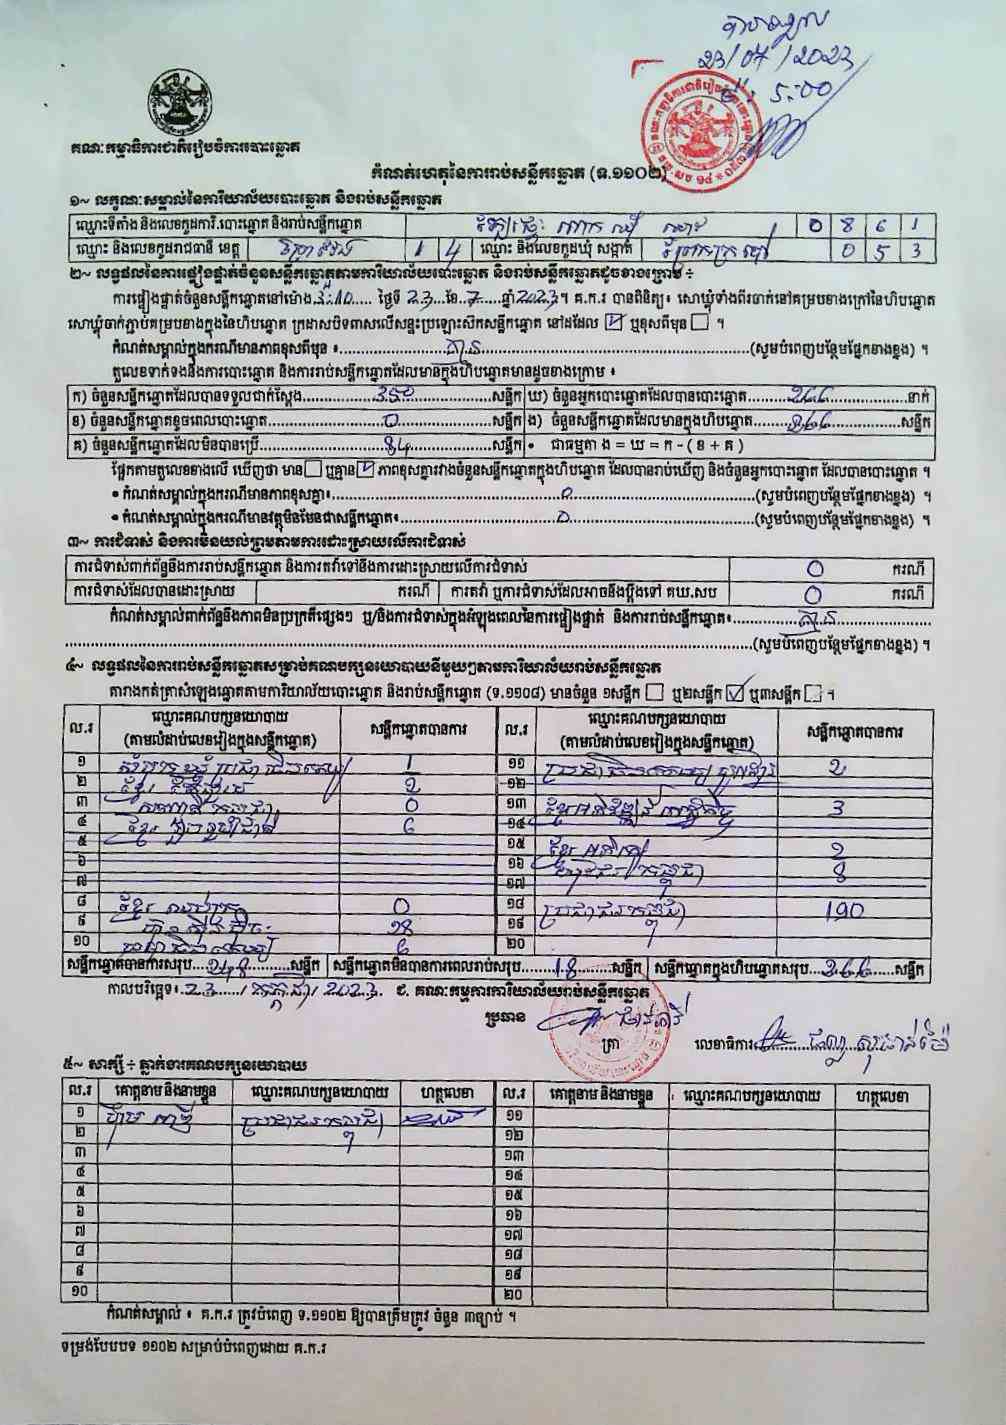 23/07/2023
ម៉ោ: 5:00
គណៈកម្មាធិការជាតិរៀបចំការបោះឆ្នោត
កំណត់ហេតុនៃការរាប់សន្លឹកឆ្នោត (ទ.១១០២)
១~ លក្ខណៈសម្គាល់នៃការិយាល័យបោះឆ្នោត និងរាប់សន្លឹកឆ្នោត
ឈ្មោះទីតាំង និងលេខកូដការិ.បោះឆ្នោត និងរាប់សន្លឹកឆ្នោត 0 8 6 1
ឈ្មោះ និងលេខកូដរាជធានី ខេត្ត ព្រៃវែង 1 4 ឈ្មោះ និងលេខកូដឃុំ សង្កាត់ 0 5 3
២~ លទ្ធផលនៃការផ្ទៀងផ្ទាត់ចំនួនសន្លឹកឆ្នោតតាមការិយាល័យបោះឆ្នោត និងរាប់សន្លឹកឆ្នោតដូចខាងក្រោម ៖
ការផ្ទៀងផ្ទាត់ចំនួនសន្លឹកឆ្នោតនៅម៉ោង 3:10 ថ្ងៃទី 23 ខែ 7 ឆ្នាំ 2023។ គ.ក.រ បានពិនិត្យ៖ សោឃ្លុំទាំងពីរចាក់នៅគម្របខាងក្រៅនៃហិបឆ្នោត
សោឃ្លុំចាក់ភ្ជាប់គម្របខាងក្នុងនៃហិបឆ្នោត ក្រដាសបិទពាសលើសន្ទះប្រឡោះស៊កសន្លឹកឆ្នោត នៅដដែល ☑ ឬខុសពីមុន ☐ ។
កំណត់សម្គាល់ក្នុងករណីមានភាពខុសពីមុន ៖ គ្មាន (សូមបំពេញបន្ថែមផ្នែកខាងខ្នង) ។
តួលេខទាក់ទងនឹងការបោះឆ្នោត និងការរាប់សន្លឹកឆ្នោតដែលមានក្នុងហិបឆ្នោតមានដូចខាងក្រោម ៖
ក) ចំនួនសន្លឹកឆ្នោតដែលបានទទួលជាក់ស្តែង 350 សន្លឹក ឃ) ចំនួនអ្នកបោះឆ្នោតដែលបានបោះឆ្នោត 266 នាក់
ខ) ចំនួនសន្លឹកឆ្នោតខូចពេលបោះឆ្នោត 0 សន្លឹក ង) ចំនួនសន្លឹកឆ្នោតដែលមានក្នុងហិបឆ្នោត 266 សន្លឹក
គ) ចំនួនសន្លឹកឆ្នោតដែលមិនបានប្រើ 84 សន្លឹក • ជាធម្មតា ង = ឃ = ក - (ខ + គ)
ផ្អែកតាមតួលេខខាងលើ ឃើញថា មាន ☐ ឬគ្មាន ☑ ភាពខុសគ្នារវាងចំនួនសន្លឹកឆ្នោតក្នុងហិបឆ្នោត ដែលបានរាប់ឃើញ និងចំនួនអ្នកបោះឆ្នោត ដែលបានបោះឆ្នោត ។
• កំណត់សម្គាល់ក្នុងករណីមានភាពខុសគ្នា៖ 0 (សូមបំពេញបន្ថែមផ្នែកខាងខ្នង) ។
• កំណត់សម្គាល់ក្នុងករណីមានវត្ថុមិនមែនជាសន្លឹកឆ្នោត៖ 0 (សូមបំពេញបន្ថែមផ្នែកខាងខ្នង) ។
៣~ ការជំទាស់ និងការមិនយល់ព្រមតាមការដោះស្រាយលើការជំទាស់
ការជំទាស់ពាក់ព័ន្ធនឹងការរាប់សន្លឹកឆ្នោត និងការតវ៉ាទៅនឹងការដោះស្រាយលើការជំទាស់ 0 ករណី
ការជំទាស់ដែលបានដោះស្រាយ ករណី ការតវ៉ា ឬការជំទាស់ដែលអាចនឹងប្តឹងទៅ គឃ.សប 0 ករណី
កំណត់សម្គាល់ពាក់ព័ន្ធនឹងភាពមិនប្រក្រតីផ្សេងៗ ឬ/និងការជំទាស់ក្នុងអំឡុងពេលនៃការផ្ទៀងផ្ទាត់ និងការរាប់សន្លឹកឆ្នោត៖ គ្មាន
(សូមបំពេញបន្ថែមផ្នែកខាងខ្នង) ។
៤~ លទ្ធផលនៃការរាប់សន្លឹកឆ្នោតសម្រាប់គណបក្សនយោបាយនីមួយៗតាមការិយាល័យរាប់សន្លឹកឆ្នោត
តារាងកត់ត្រាសំឡេងឆ្នោតតាមការិយាល័យបោះឆ្នោត និងរាប់សន្លឹកឆ្នោត (ទ.១១០៨) មានចំនួន ១សន្លឹក ☐ ឬ២សន្លឹក ☑ ឬ៣សន្លឹក ☐ ។
ល.រ ឈ្មោះគណបក្សនយោបាយ (តាមលំដាប់លេខរៀងក្នុងសន្លឹកឆ្នោត) សន្លឹកឆ្នោតបានការ ល.រ ឈ្មោះគណបក្សនយោបាយ (តាមលំដាប់លេខរៀងក្នុងសន្លឹកឆ្នោត) សន្លឹកឆ្នោតបានការ
១ 1 ១១ 2
២ 2 ១២
៣ 0 ១៣ 3
៤ ខ្មែរ រួបរួមជាតិ 6 ១៤
៥ ១៥ 2
៦ ១៦ 8
៧ ១៧
៨ 0 ១៨ ប្រជាជនកម្ពុជា 190
៩ 28 ១៩
១០ 6 ២០
សន្លឹកឆ្នោតបានការសរុប 248 សន្លឹក សន្លឹកឆ្នោតមិនបានការពេលរាប់សរុប 18 សន្លឹក សន្លឹកឆ្នោតក្នុងហិបឆ្នោតសរុប 266 សន្លឹក
កាលបរិច្ឆេទ៖ 23 / កក្កដា / 2023 ជ. គណៈកម្មការការិយាល័យរាប់សន្លឹកឆ្នោត
ប្រធាន
ត្រា លេខាធិការ
៥~ សាក្សី ÷ ភ្នាក់ងារគណបក្សនយោបាយ
ល.រ គោត្តនាម និងនាមខ្លួន ឈ្មោះគណបក្សនយោបាយ ហត្ថលេខា ល.រ គោត្តនាម និងនាមខ្លួន ឈ្មោះគណបក្សនយោបាយ ហត្ថលេខា
១ ប្រជាជនកម្ពុជា ១១
២ ១២
៣ ១៣
៤ ១៤
៥ ១៥
៦ ១៦
៧ ១៧
៨ ១៨
៩ ១៩
១០ ២០
កំណត់សម្គាល់ ៖ គ.ក.រ ត្រូវបំពេញ ទ.១១០២ ឱ្យបានត្រឹមត្រូវ ចំនួន ៣ច្បាប់ ។
ទម្រង់បែបបទ ១១០២ សម្រាប់បំពេញដោយ គ.ក.រ